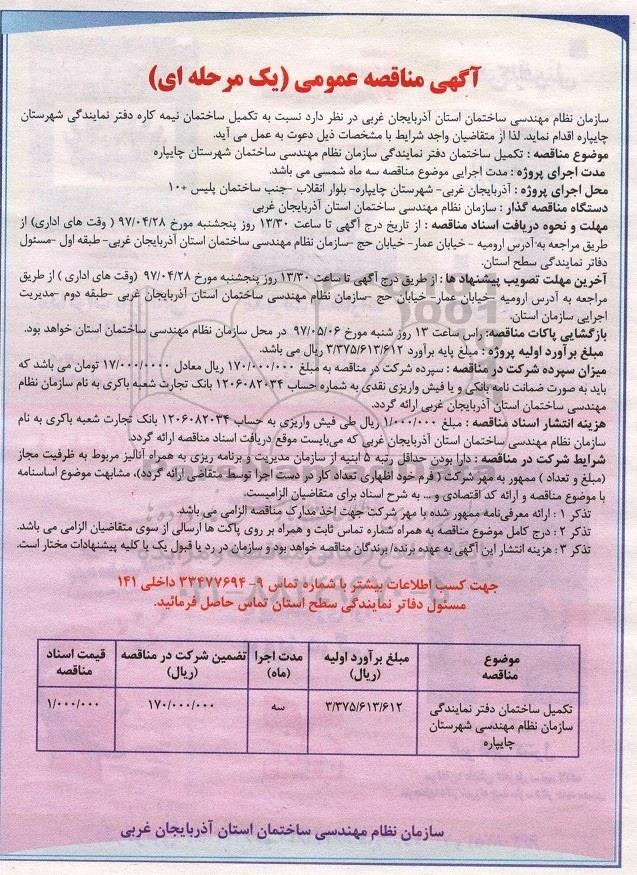 آگهی مناقصه عمومی (یک مرحله ای)
سازمان نظام مهندسی ساختمان استان آذربایجان غربی در نظر دارد نسبت به تکمیل ساختمان نیمه کاره دفتر نمایندگی شهرستان
چایپاره اقدام نماید. لذا از متقاضیان واجد شرایط با مشخصات ذیل دعوت به عمل می آید.
موضوع مناقصه : تکمیل ساختمان دفتر نمایندگی سازمان نظام مهندسی ساختمان شهرستان چایپاره
مدت اجرای پروژه : مدت اجرایی موضوع مناقصه سه ماه شمسی می باشد.
محل اجرای پروژه : آذربایجان غربی- شهرستان چایپاره- بلوار انقلاب -جنب ساختمان پلیس +۱۰
دستگاه مناقصه گذار : سازمان نظام مهندسی ساختمان استان آذربایجان غربی
مهلت و نحوه دریافت اسناد مناقصه : از تاریخ درج آگهی تا ساعت ۱۳/۳۰ روز پنجشنبه مورخ ۹۷/۰۴/۲۸ ( وقت های اداری) از
طریق مراجعه به آدرس ارومیه - خیابان عمار- خیابان حج -سازمان نظام مهندسی ساختمان استان آذربایجان غربی-طبقه اول -مسئول
دفاتر نمایندگی سطح استان.
آخرین مهلت تصویب پیشنهاد ها : از طریق درج آگهی تا ساعت ۱۳/۳۰ روز پنجشنبه مورخ ۹۷/۰۴/۲۸ (وقت های اداری ) از طریق
مراجعه به آدرس ارومیه -خیابان عمار- خیابان حج -سازمان نظام مهندسی ساختمان استان آذربایجان غربی -طبقه دوم -مدیریت
اجرایی سازمان استان.
بازگشایی پاکات مناقصه: راس ساعت ۱۳ روز شنبه مورخ ۹۷/۰۵/۰۶ در محل سازمان نظام مهندسی ساختمان استان خواهد بود.
مبلغ برآورد اولیه پروژه : مبلغ پایه برآورد ۳/۳۷۵/۶۱۳/۶۱۲ ریال می باشد.
میزان سپرده شرکت در مناقصه : سپرده شرکت در مناقصه به مبلغ ۱۷۰/۰۰۰/۰۰۰ ریال معادل ۱۷/۰۰۰/۰۰۰۰ تومان می باشد که
باید به صورت ضمانت نامه بانکی و یا فیش واریزی نقدی به شماره حساب ۱۲۰۶۰۸۲۰۳۴ بانک تجارت شعبه باکری به نام سازمان نظام
مهندسی ساختمان استان آذربایجان غربی ارائه گردد.
هزینه انتشار اسناد مناقصه : مبلغ ۱/۰۰۰/۰۰۰ ریال طی فیش واریزی به حساب ۱۲۰۶۰۸۲۰۳۴ بانک تجارت شعبه باکری به نام
سازمان نظام مهندسی ساختمان استان آذربایجان غربی که می‌بایست موقع دریافت اسناد مناقصه ارائه گردد.
شرایط شرکت در مناقصه : دارا بودن حداقل رتبه ۵ ابنیه از سازمان مدیریت و برنامه ریزی به همراه آنالیز مربوط به ظرفیت مجاز
(مبلغ و تعداد ) ممهور به مهر شرکت( فرم خود اظهاری تعداد کار در دست اجرا توسط متقاضی ارائه گردد)، مشابهت موضوع اساسنامه
با موضوع مناقصه و ارائه کد اقتصادی و ... به شرح اسناد برای متقاضیان الزامیست.
تذکر ۱ : ارائه معرفی‌نامه ممهور شده با مهر شرکت جهت اخذ مدارک مناقصه الزامی می باشد.
تذکر ۲ : درج کامل موضوع مناقصه به همراه شماره تماس ثابت و همراه بر روی پاکت ها ارسالی از سوی متقاضیان الزامی می باشد.
تذکر ۳ : هزینه انتشار این آگهی به عهده برنده/ برندگان مناقصه خواهد بود و سازمان در رد یا قبول یک یا کلیه پیشنهادات مختار است.
جهت کسب اطلاعات بیشتر با شماره تماس ۹- ۳۳۴۷۷۶۹۴ داخلی ۱۴۱
مسئول دفاتر نمایندگی سطح استان تماس حاصل فرمائید.
موضوع مناقصه
مبلغ برآورد اولیه (ریال)
مدت اجرا (ماه)
تضمین شرکت در مناقصه (ریال)
قیمت اسناد مناقصه
تکمیل ساختمان دفتر نمایندگی
سازمان نظام مهندسی شهرستان
چایپاره
۳/۳۷۵/۶۱۳/۶۱۲
سه
۱۷۰/۰۰۰/۰۰۰
۱/۰۰۰/۰۰۰
سازمان نظام مهندسی ساختمان استان آذربایجان غربی